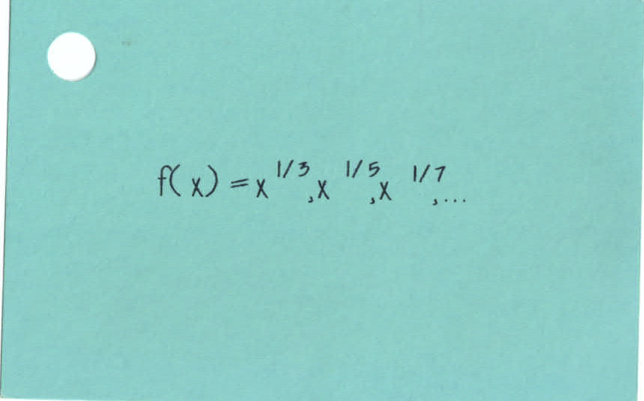 f(x) = x^1/3, x^1/5, x^1/7, ...